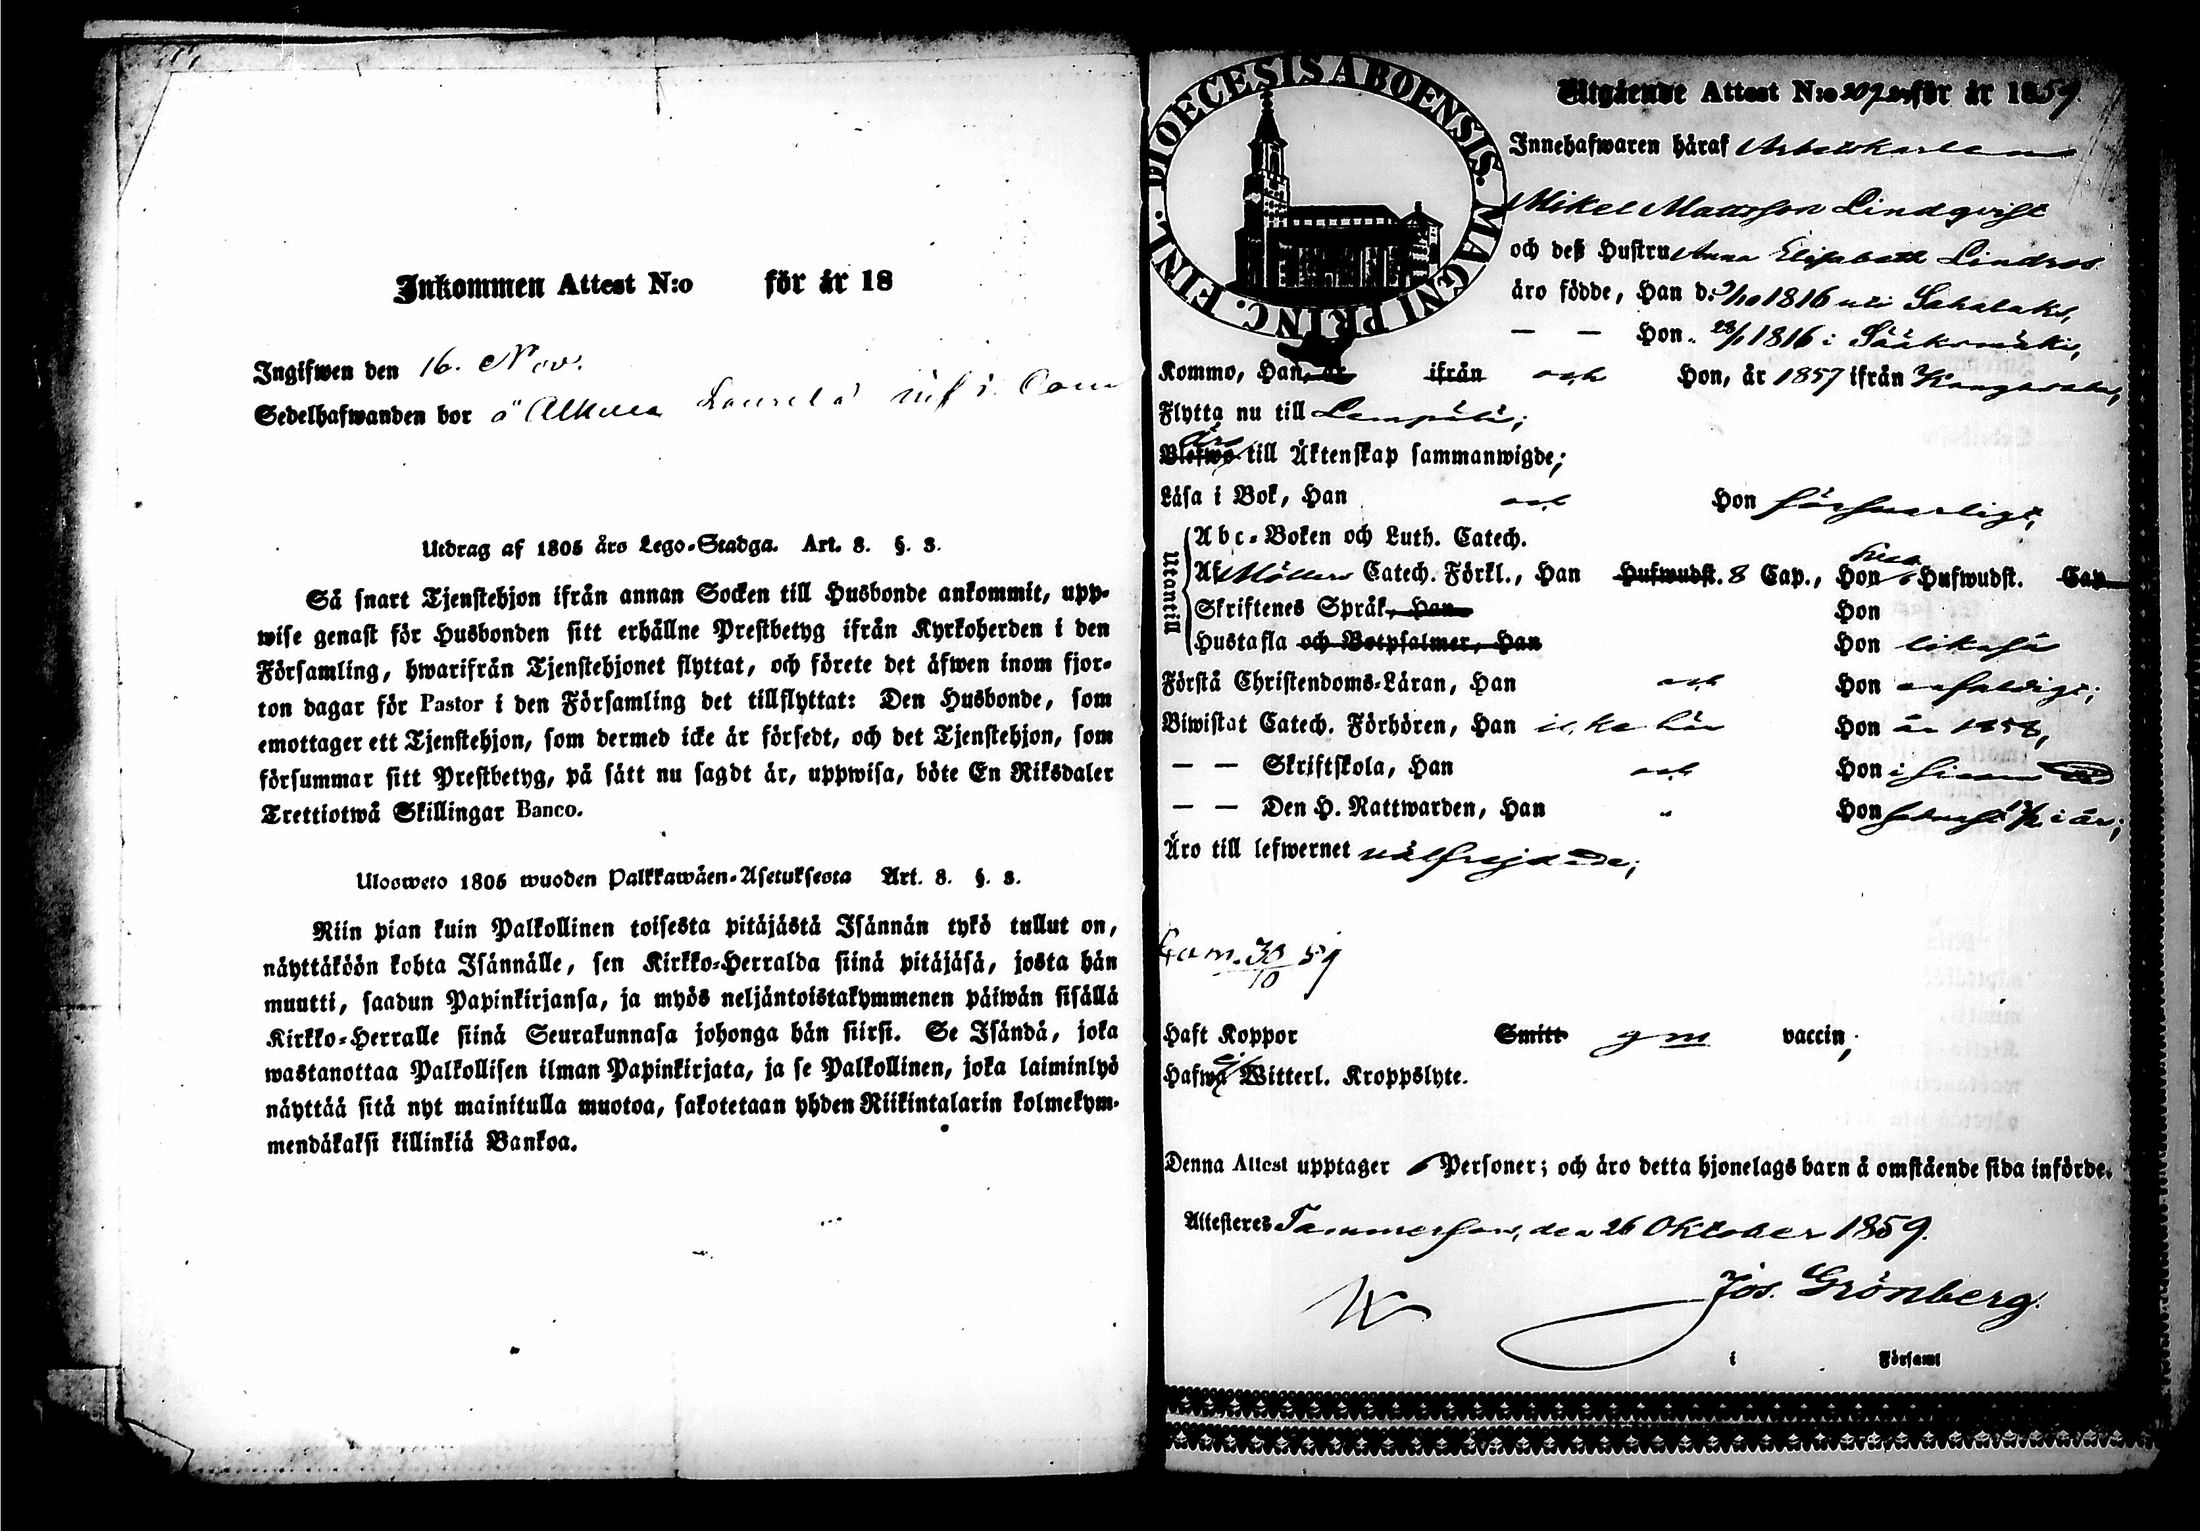 Inkommen Attest N:o för år 18
Ingifwen den 16. Nov.
Sedelhafwanden bor å Alkula
Utdrag af 1805 års Lego-Stadga. Art. 8. §. 3.
Så snart Tjenstehjon ifrån annan Socken till Husbonde ankommit, upp-
wise genast för Husbonden sitt erhållne Prestbetyg ifrån Kyrkoherden i den
Församling, hwarifrån Tjenstehjonet flyttat, och förete det äfwen inom fjor-
ton dagar för Pastor i den Församling det tillflyttat: Den Husbonde, som
emottager ett Tjenstehjon, som dermed icke är försedt, och det Tjenstehjon, som
försummar sitt Prestbetyg, på sätt nu sagdt är, uppwisa, böte En Riksdaler
Trettiotwå Skillingar Banco.
Ulosweto 1805 wuoden Palkkawäen-Asetuksesta Art. 8. §. 3.
Niin pian kuin Palkollinen toisesta pitäjästä Isännän tykö tullut on,
näyttäköön kohta Isännälle, sen Kirkko-Herralda siinä pitäjäsä, josta hän
muutti, saadun Papinkirjansa, ja myös neljäntoistakymmenen päiwän sisällä
Kirkko-Herralle siinä Seurakunnasa johonga hän siirsi. Se Isändä, joka
wastanottaa Palkollisen ilman Papinkirjata, ja se Palkollinen, joka laiminlyö
näyttää sitä nyt mainitulla muotoa, sakotetaan yhden Riikintalarin kolmekym-
mendäkaksi killinkiä Bankoa.
FINL. DIOECESIS ABOENSIS. MAGNI PRINC.
Utgående Attest N:o för år 1859.
Innehafwaren häraf Arbetskarlen
Mikel Mattsson Lindqvist
och deß Hustru Anna Elisabeth Lindros
äro födde, Han d: 1816 uti Sahalaks,
— — Hon. 23/1 1816 i Sääksmäki,
Kommo, Han, år ifrån och Hon, år 1857 ifrån Kangasala,
Flytta nu till Lempälä;
Blefwo äro till Äktenskap sammanwigde;
Läsa i Bok, Han och Hon försvarligt,
Utantill
Abc-Boken och Luth. Catech.
Af Möllers Catech. Förkl., Han Hufwudst. 8 Cap., Hon Hufwudst. Cap
Skriftenes Språk, Han Hon
Hustafla och Botpsalmer, Han Hon likaså
Förstå Christendoms-Läran, Han och Hon enfaldigt;
Biwistat Catech. Förhören, Han icke här Hon år 1858,
— — Skriftskola, Han och Hon i sinom tid
— — Den H. Nattwarden, Han " Hon i år;
Äro till lefwernet välfrejdade;
Kom. 30/10 59
Haft Koppor Smitt gm vaccin;
Hafwa ej Witterl. Kroppslyte.
Denna Attest upptager 6 Personer; och äro detta hjonelags barn å omstående sida införde.
Attesteres Tammerfors, den 26 Oktober 1859.
Jos. Grönberg.
i Församl